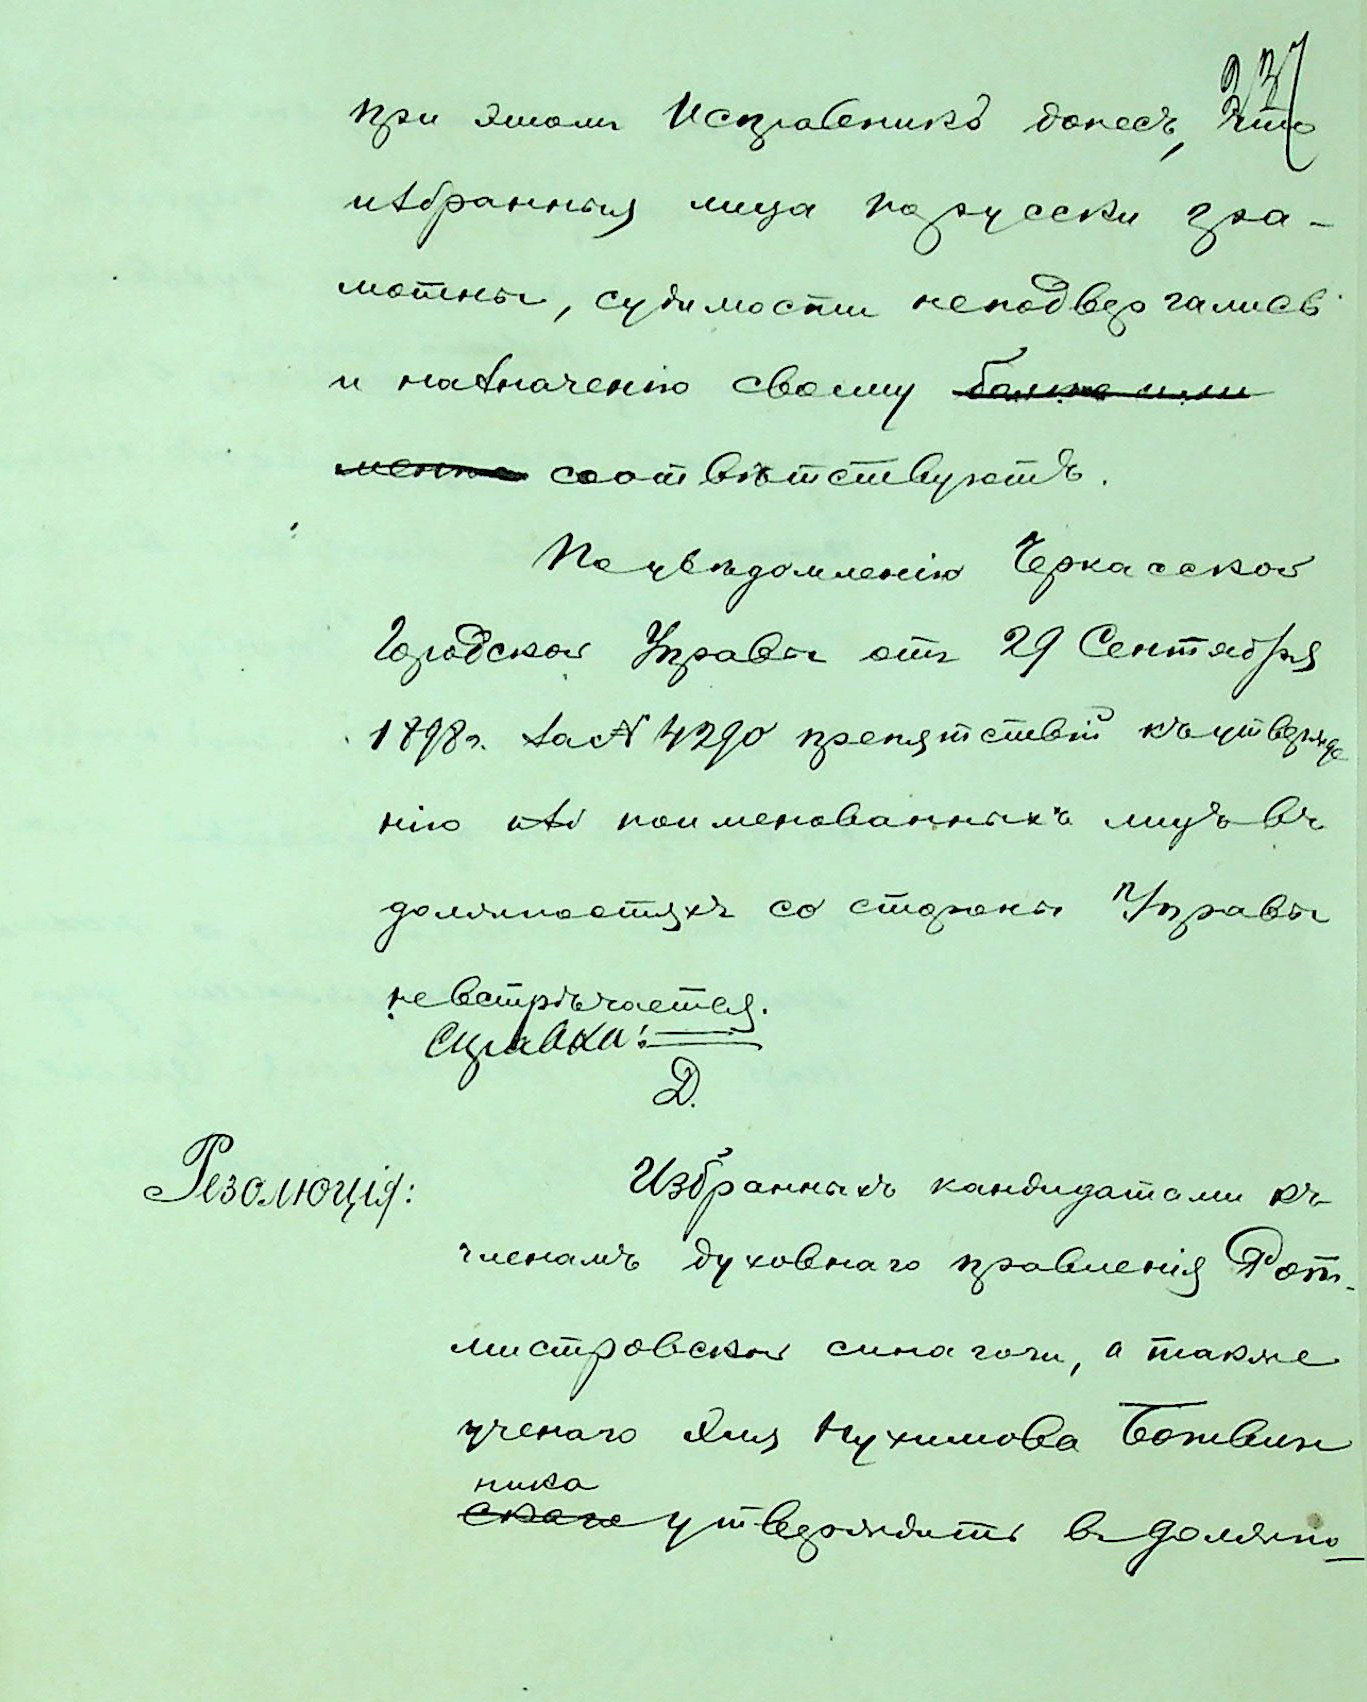 237
при этомъ Исправникъ донесъ, что
избранныя лица по русски гра-
мотны, судимости неподвергались
и назначенію своему более или
менее соотвѣтствуютъ.
По увѣдомленію Черкасской
Городской Управы отъ 29 Сентября
1898 г. за № 4290 препятствій къ утвержде
нію поименованныхъ лицъ въ
должностяхъ со стороны Управы
не встрѣчается.
Справка:
Д.
Резолюція:
Избранныхъ кандидатами къ
членамъ духовнаго правленія Рот-
мистровской синагоги, а также
ученаго Эля Нухимова Ботвин
ника
скаго утвердить въ должно-